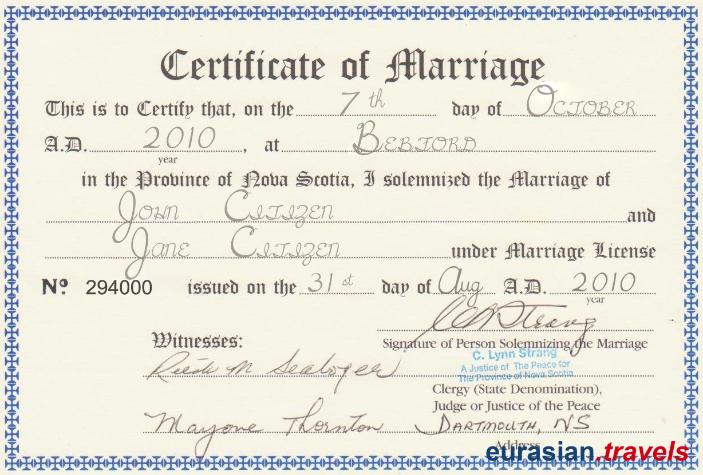 Certificate of Marriage
This is to Certify that, on the 7th day of October
A.D. 2010, at Bebford
year
in the Province of Nova Scotia, I solemnized the Marriage of
John Citizen and
Jane Citizen under Marriage License
No 294000 issued on the 31st day of Aug A.D. 2010
year
Strang
Witnesses:
Signature of Person Solemnizing the Marriage
C. Lynn Strang
A Justice of The Peace for
The Province of Nova Scotia
Clergy (State Denomination),
Judge or Justice of the Peace
Marjorie Thornton Dartmouth, NS
Address
eurasian.travels